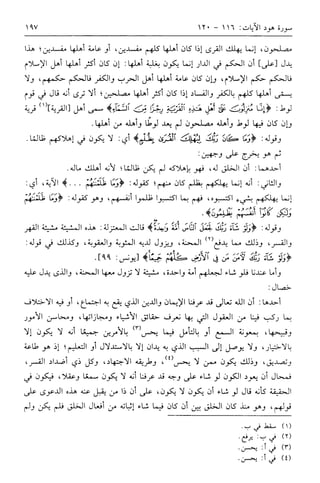 سورة هود الآيات: ١١٦ - ١٢٠
١٩٧
مصلحون، إنما يهلك القرى إذا كان أهلها كلهم مفسدين، أو عامة أهلها مفسدين؛ هذا
يدل [على] أن الحكم في الدار إنما يكون بغلبة أهلها: إن كان أكثر أهلها أهل الإسلام
فالحكم حكم الإسلام، وإن كان عامة أهلها أهل الحرب والكفر فالحكم حكمهم، ولا
يسمى أهلها كلهم بالكفر والفساد إذا كان أكثر أهلها مصلحين؛ ألا ترى أنه قال في قوم
لوط: ﴿إِنَّا مُنزِلُونَ عَلَىٰ أَهْلِ هَٰذِهِ الْقَرْيَةِ رِجْزًا مِّنَ السَّمَاءِ﴾ سمى أهل [القرية](١) قرية
وإن كان فيها لوط وأهله مصلحون لم يعد لوطًا وأهله من أهلها.
وقوله: ﴿وَمَا كَانَ رَبُّكَ لِيُهْلِكَ الْقُرَىٰ بِظُلْمٍ﴾ أي: لا يكون في إهلاكهم ظالمًا.
ثم هو يخرج على وجهين:
أحدهما: أن الخلق له، فهو بإهلاكه لم يكن ظالمًا؛ لأنه أهلك ماله.
والثاني: أنه إنما يهلكهم بظلم كان منهم؛ كقوله: ﴿وَمَا ظَلَمْنَٰهُمْ ...﴾ الآية، أي:
إنما يهلكهم بشيء اكتسبوه، فهم بما اكتسبوا ظلموا أنفسهم، وهو كقوله: ﴿وَمَا ظَلَمْنَٰهُمْ
وَلَٰكِن كَانُوٓا أَنفُسَهُمْ يَظْلِمُونَ﴾.
وقوله: ﴿وَلَوْ شَآءَ رَبُّكَ لَجَعَلَ النَّاسَ أُمَّةً وَٰحِدَةً﴾ قالت المعتزلة: هذه المشيئة مشيئة القهر
والقسر، وذلك مما يدفع(٢) المحنة، ويزول لديه المثوبة والعقوبة، وكذلك في قوله:
﴿وَلَوْ شَآءَ رَبُّكَ لَآمَنَ مَن فِى الْأَرْضِ كُلُّهُمْ جَمِيعًا﴾ [يونس: ٩٩].
وأما عندنا فلو شاء لجعلهم أمة واحدة، مشيئة لا تزول معها المحنة، والذي يدل عليه
خصال:
أحدها: أن الله تعالى قد عرفنا الإيمان والدين الذي يقع به اجتماع، أو فيه الاختلاف
بما ركب فينا من العقول التي بها نعرف حقائق الأشياء ومجازاتها، ومحاسن الأمور
وقبيحها، بمعونة السمع أو بالتأمل فيما يحس(٣) بالأمرين جميعًا أنه لا يكون إلا
بالاختيار، ولا يوصل إلى السبب الذي به يدان إلا بالاستدلال أو التعليم؛ إذ هو طاعة
وتصديق، وذلك يكون ممن لا يحس(٤)، وطريقه الاجتهاد، وكل ذي أضداد القسر،
فمحال أن يعود الكون لو شاء على وجه قد عرفنا أنه لا يكون سمعًا وعقلا، فيكون في
الحقيقة كأنه قال لو شاء أن يكون لا يكون، على أن ذا من يقبل عنه هذه الدعوى على
قولهم، وهو منذ كان الخلق بين أن كان فيما شاء إثباته من أفعال الخلق فلم يكن ولم
(١) سقط في ب.
(٢) في ب: يرفع.
(٣) في أ: يحسن.
(٤) في أ: يحسن.